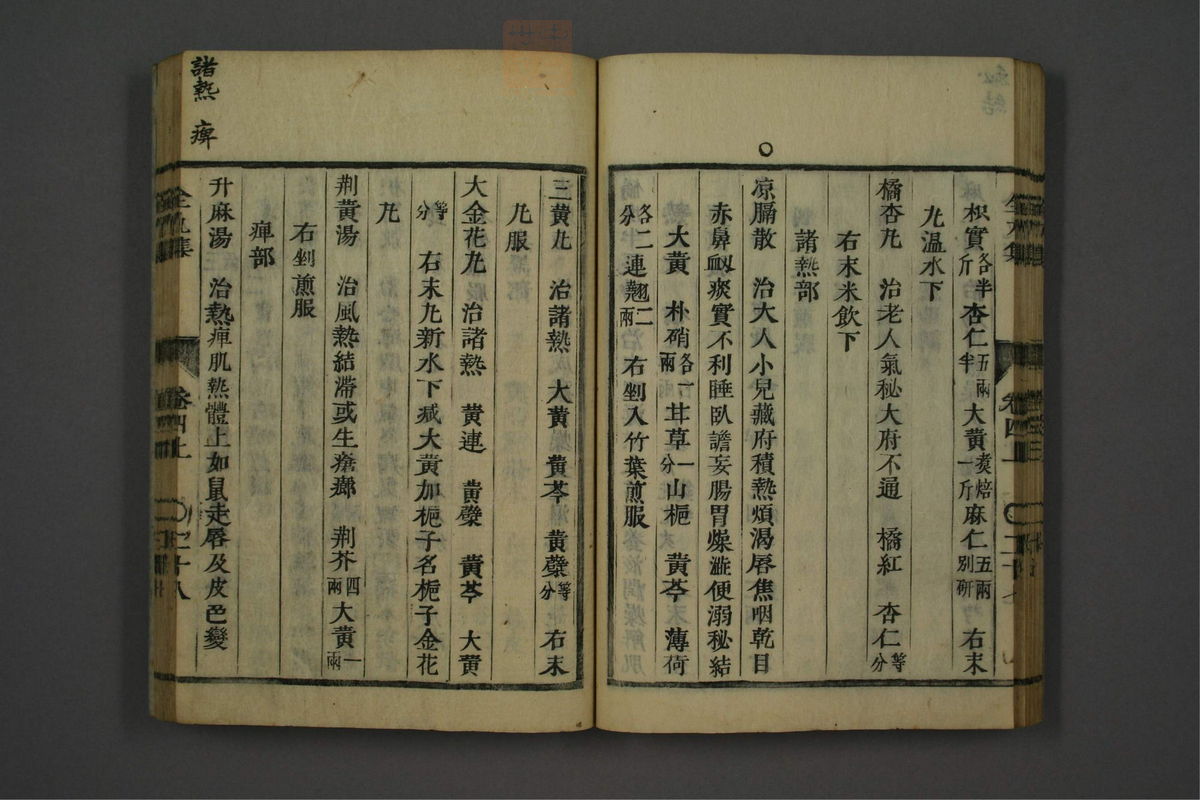 枳實各半斤杏仁五兩半大黄煑焙一斤麻仁五兩别研 右末
九温水下
橘杏九 治老人氣秘大府不通 橘紅 杏仁等分
右末米飲下
諸熱部
凉膈散 治大人小兒藏府積熱煩渴唇焦咽乾目
赤鼻衂痰實不利睡臥譫妄腸胃燥澁便溺秘結
大黄 朴硝各一兩 甘草一分 山梔 黄芩 薄荷
各二分 連翹二兩 右剉入竹葉煎服
三黄九 治諸熱 大黄 黄芩 黄蘗等分 右末
九服
大金花九 治諸熱 黄連 黄蘗 黄芩 大黄
等分 右末九新水下减大黄加梔子名梔子金花
九
荆黄湯 治風熱結滯或生瘡癤 荆芥四兩 大黄一兩
右剉煎服
痺部
升麻湯 治熱痺肌熱體上如鼠走唇及皮色變
諸熱 痺
全九集 卷四上 二十八